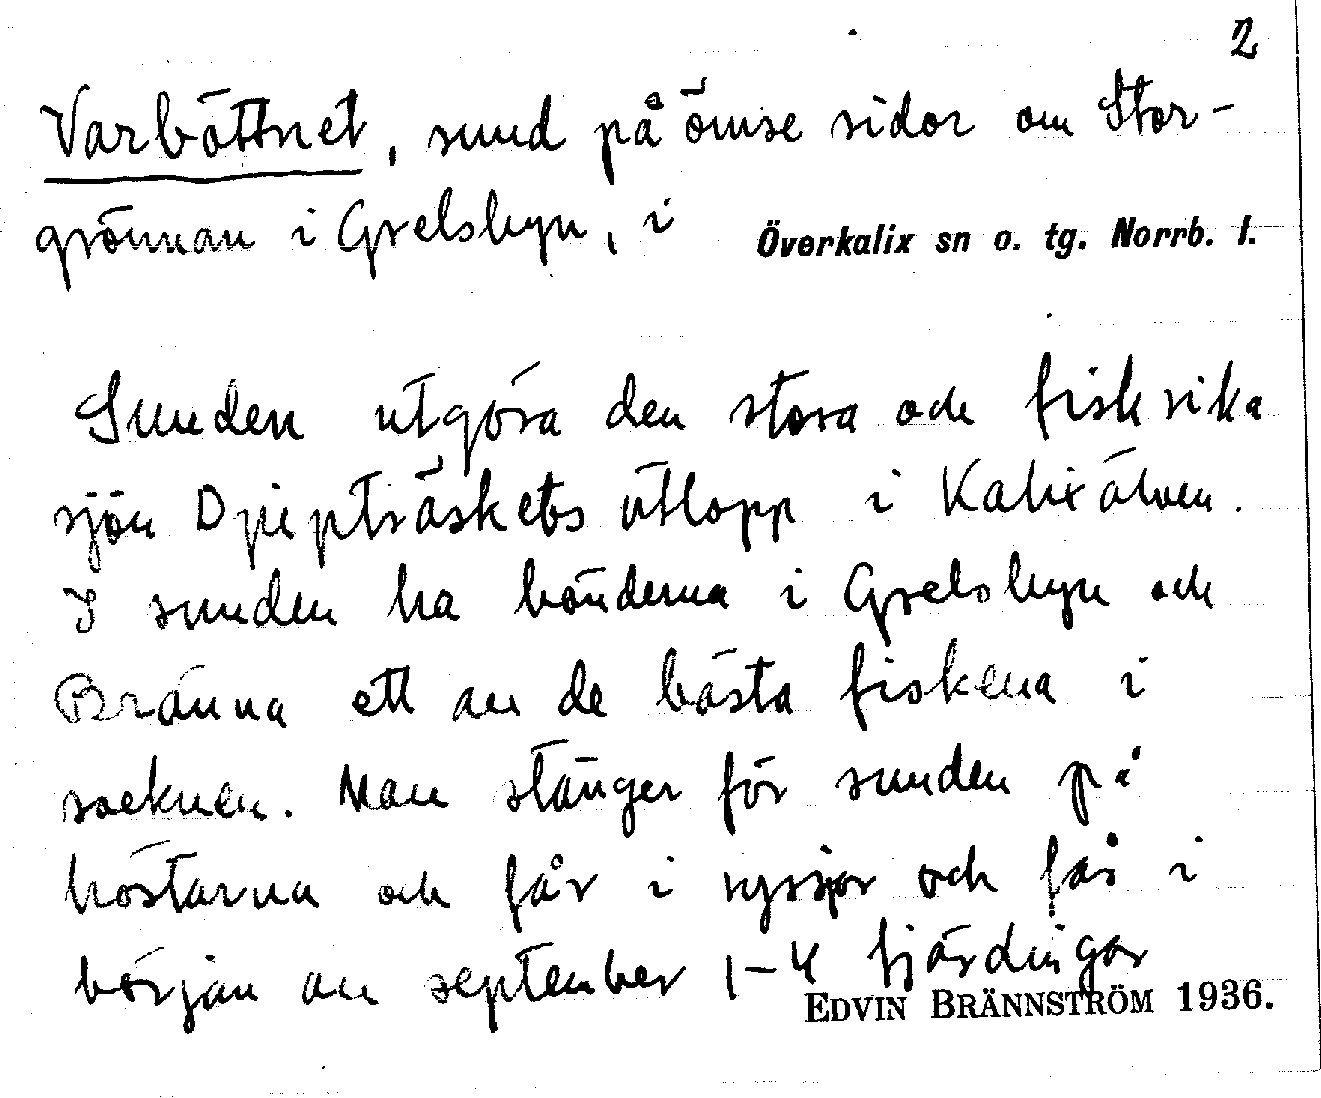 2
Varböttnet, sund på ömse sidor om Stor-
grönnan i Grelsbyn, i Överkalix sn o. tg. Norrb. l.
Sunden utgöra den stora och fiskrika
sjön Djupträskets utlopp i Kalixälven.
I sunden ha bönderna i Grelsbyn och
Bränna ett av de bästa fiskena i
socknen. Man stänger för sunden på
höstarna och får i ryssjor och fås i
början av september 1-4 fjärdingar
EDVIN BRÄNNSTRÖM 1936.